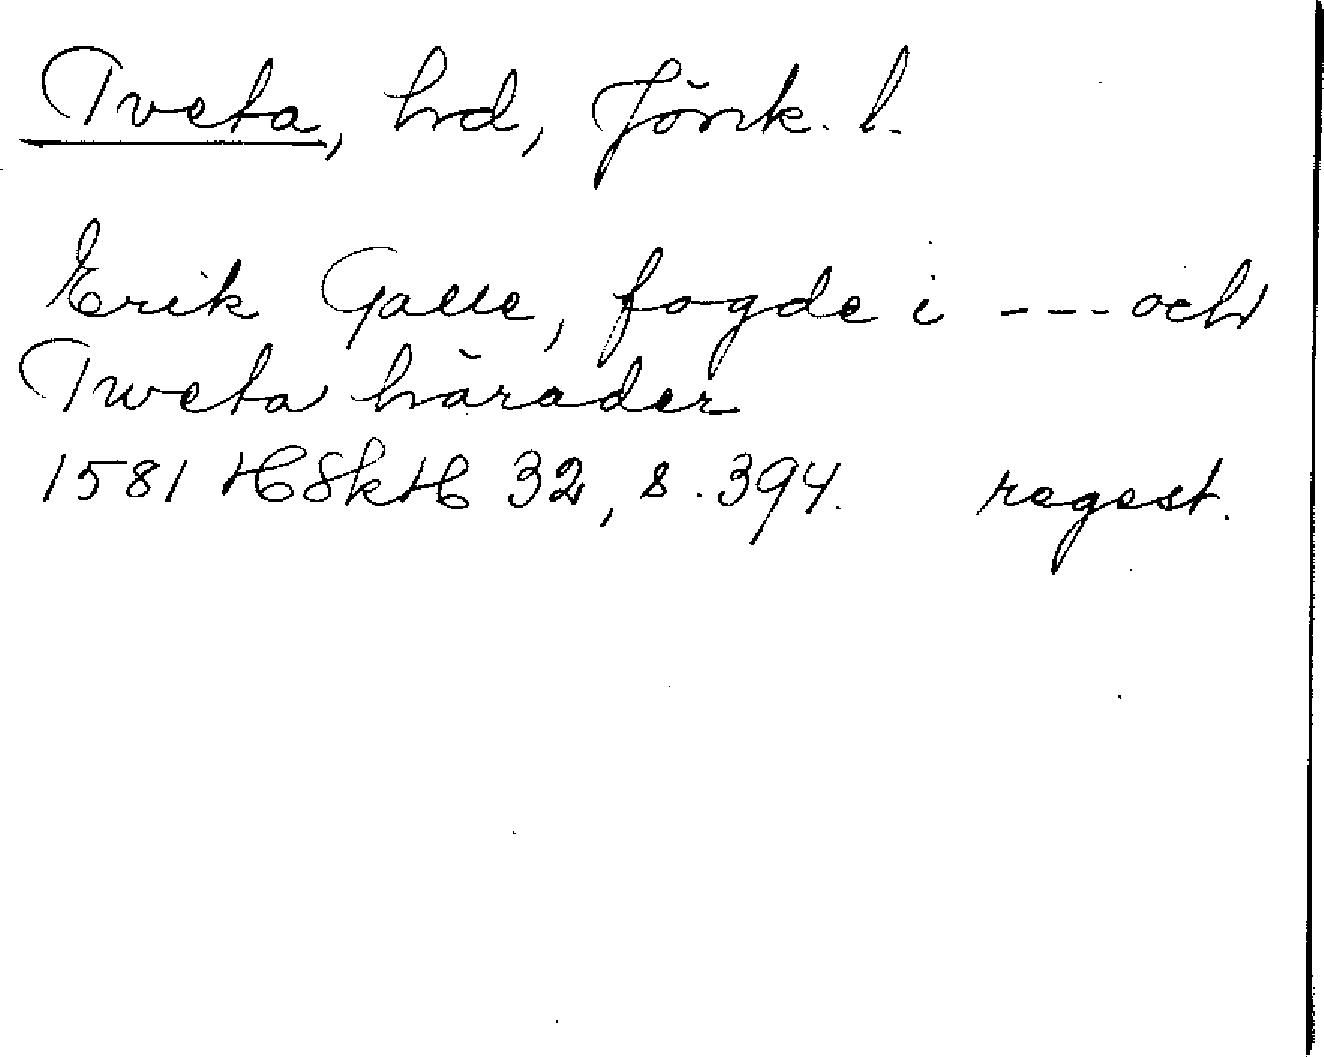 Tveta, hd, Jönk. l.
Erik Galle, fogde i --- och
Tweta härader
1581 HSkH 32, s. 394. regest.